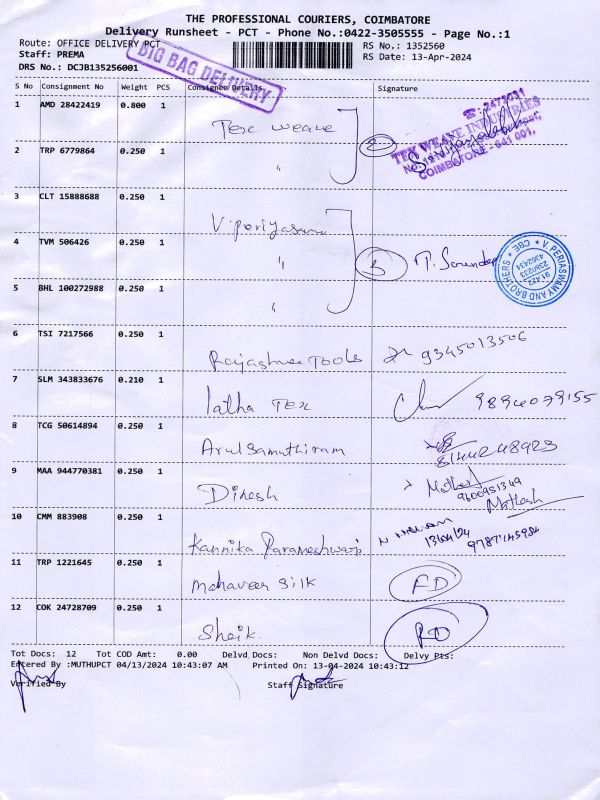 THE PROFESSIONAL COURIERS, COIMBATORE
Delivery Runsheet - PCT - Phone No.:0422-3505555 - Page No.:1
Route: OFFICE DELIVERY PCT
RS No.: 1352560
Staff: PREMA
RS Date: 13-Apr-2024
DRS No.: DCJB135256001
BIG BAG DELIVERY
S No Consignment No Weight PCS Consignee Details Signature
1 AMD 28422419 0.800 1 Tex weave
2
☎: 2473031
TEX WEAVE INDUSTRIES
COIMBATORE - 641 001.
2 TRP 6779864 0.250 1 "
3 CLT 15888688 0.250 1 V. periyasamy
4 TVM 506426 0.250 1 "
3
V. PERIASWAMY AND BROTHERS * CBE *
91 422
4362434
5 BHL 100272988 0.250 1 "
6 TSI 7217566 0.250 1 Rajashree Tools 9345013506
7 SLM 343833676 0.210 1 latha Tex 9894039155
8 TCG 50614894 0.250 1 Arul Samuthiram 8144248923
9 MAA 944770381 0.250 1 Dinesh
9600951349
Mathesh
10 CMM 883908 0.250 1 Kannika Parameshwari
13/04/24
11 TRP 1221645 0.250 1 mahaveer silk FD
12 COK 24728709 0.250 1 Sheik. RD
Tot Docs: 12 Tot COD Amt: 0.00 Delvd Docs: Non Delvd Docs: Delvy Pts:
Entered By :MUTHUPCT 04/13/2024 10:43:07 AM Printed On: 13-04-2024 10:43:12
Verified By Staff Signature